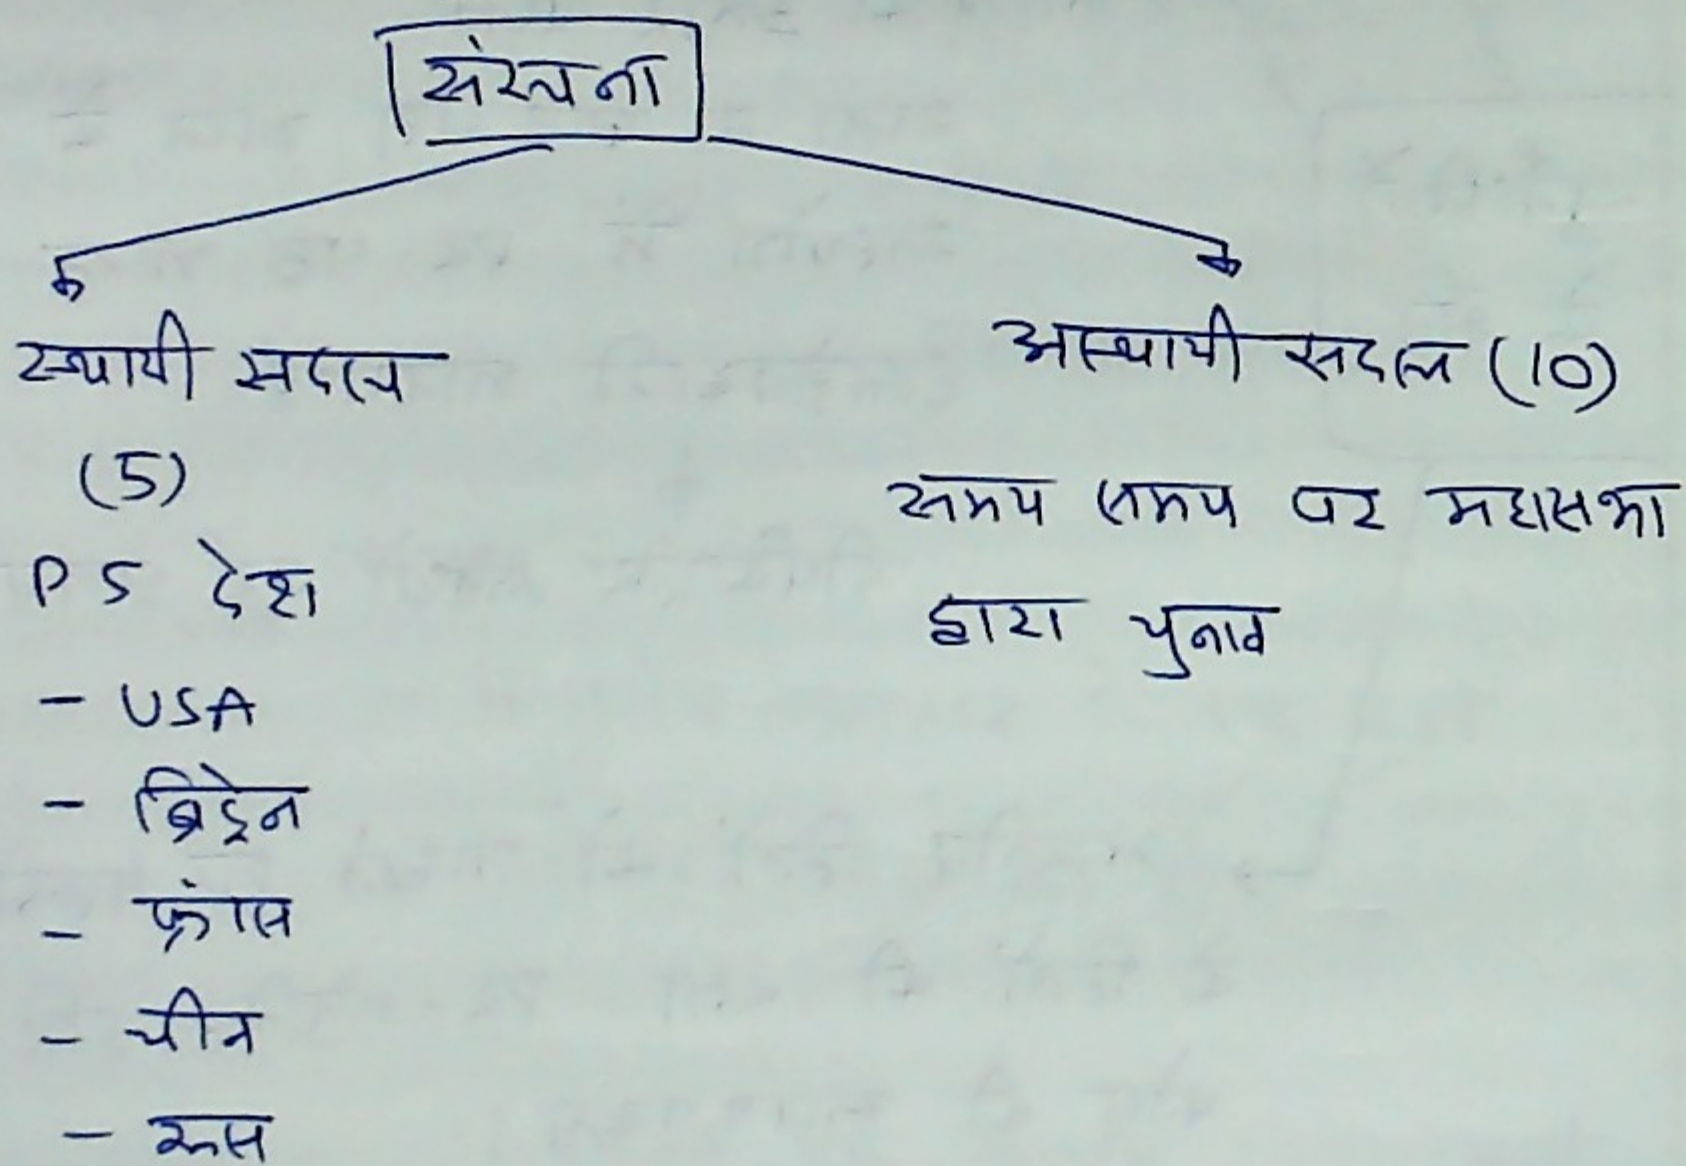 संरचना
स्थायी सदस्य
(5)
P5 देश
- USA
- ब्रिट्रेन
- फ्रांस
- चीन
- रूस
अस्थायी सदस्य (10)
समय समय पर महासभा
द्वारा चुनाव